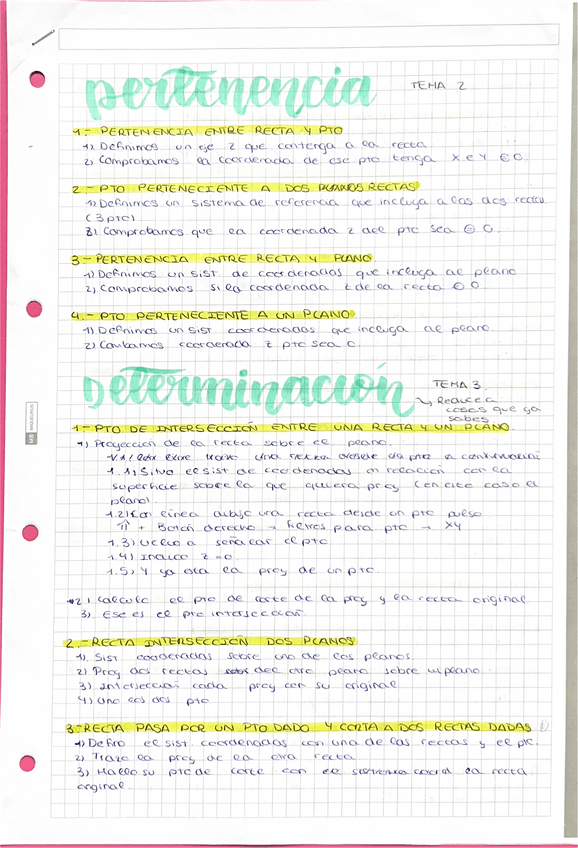 pertenencia
TEMA 2
1.- PERTENENCIA ENTRE RECTA Y PTO
1) Definimos un eje z que contenga a la recta
2) Comprobamos la coordenada de ese pto tenga x e y ⊖ 0.
2.- PTO PERTENECIENTE A DOS RECTAS
1) Definimos un sistema de referencia que incluya a las dos rectas
(3 pto)
2) Comprobamos que la coordenada z del pto sea ⊖ 0.
3.- PERTENENCIA ENTRE RECTA Y PLANO
1) Definimos un sist de coordenadas que incluya al plano
2) Comprobamos si la coordenada z de la recta ⊖ 0.
4.- PTO PERTENECIENTE A UN PLANO
1) Definimos un sist coordenadas que incluya al plano
2) coordenada z pto sea 0.
Determinación
TEMA 3.
↳ Reduce a
cosas que ya
sabes
1- PTO DE INTERSECCIÓN ENTRE UNA RECTA Y UN PLANO.
1) Proyección de la recta sobre el plano.
1.1) Situo el sist de coordenadas en relación con la
superficie sobre la que quiera proy (en este caso el
plano).
1.2) Con línea dibujo una recta desde un pto
⇑ + Botón derecho → filtros para pto → XY
1.3) Vuelvo a señalar el pto
1.4) Indico z = 0.
1.5) Y ya esta la proy de un pto.
2) Calculo el pto de corte de la proy y la recta original
3) Ese es el pto intersección.
2.- RECTA INTERSECCIÓN DOS PLANOS
1) Sist coordenadas sobre uno de los planos
2) Proy dos rectas del otro plano sobre mi plano.
3) Intersección cada proy con su original
4) Uno los dos pto
3.- RECTA PASA POR UN PTO DADO Y CORTA A DOS RECTAS DADAS
1) Defino el sist coordenadas con una de las rectas y el pto.
2) Trazo la proy de la otra recta
3) Hallo su pto de corte con el la recta
original.